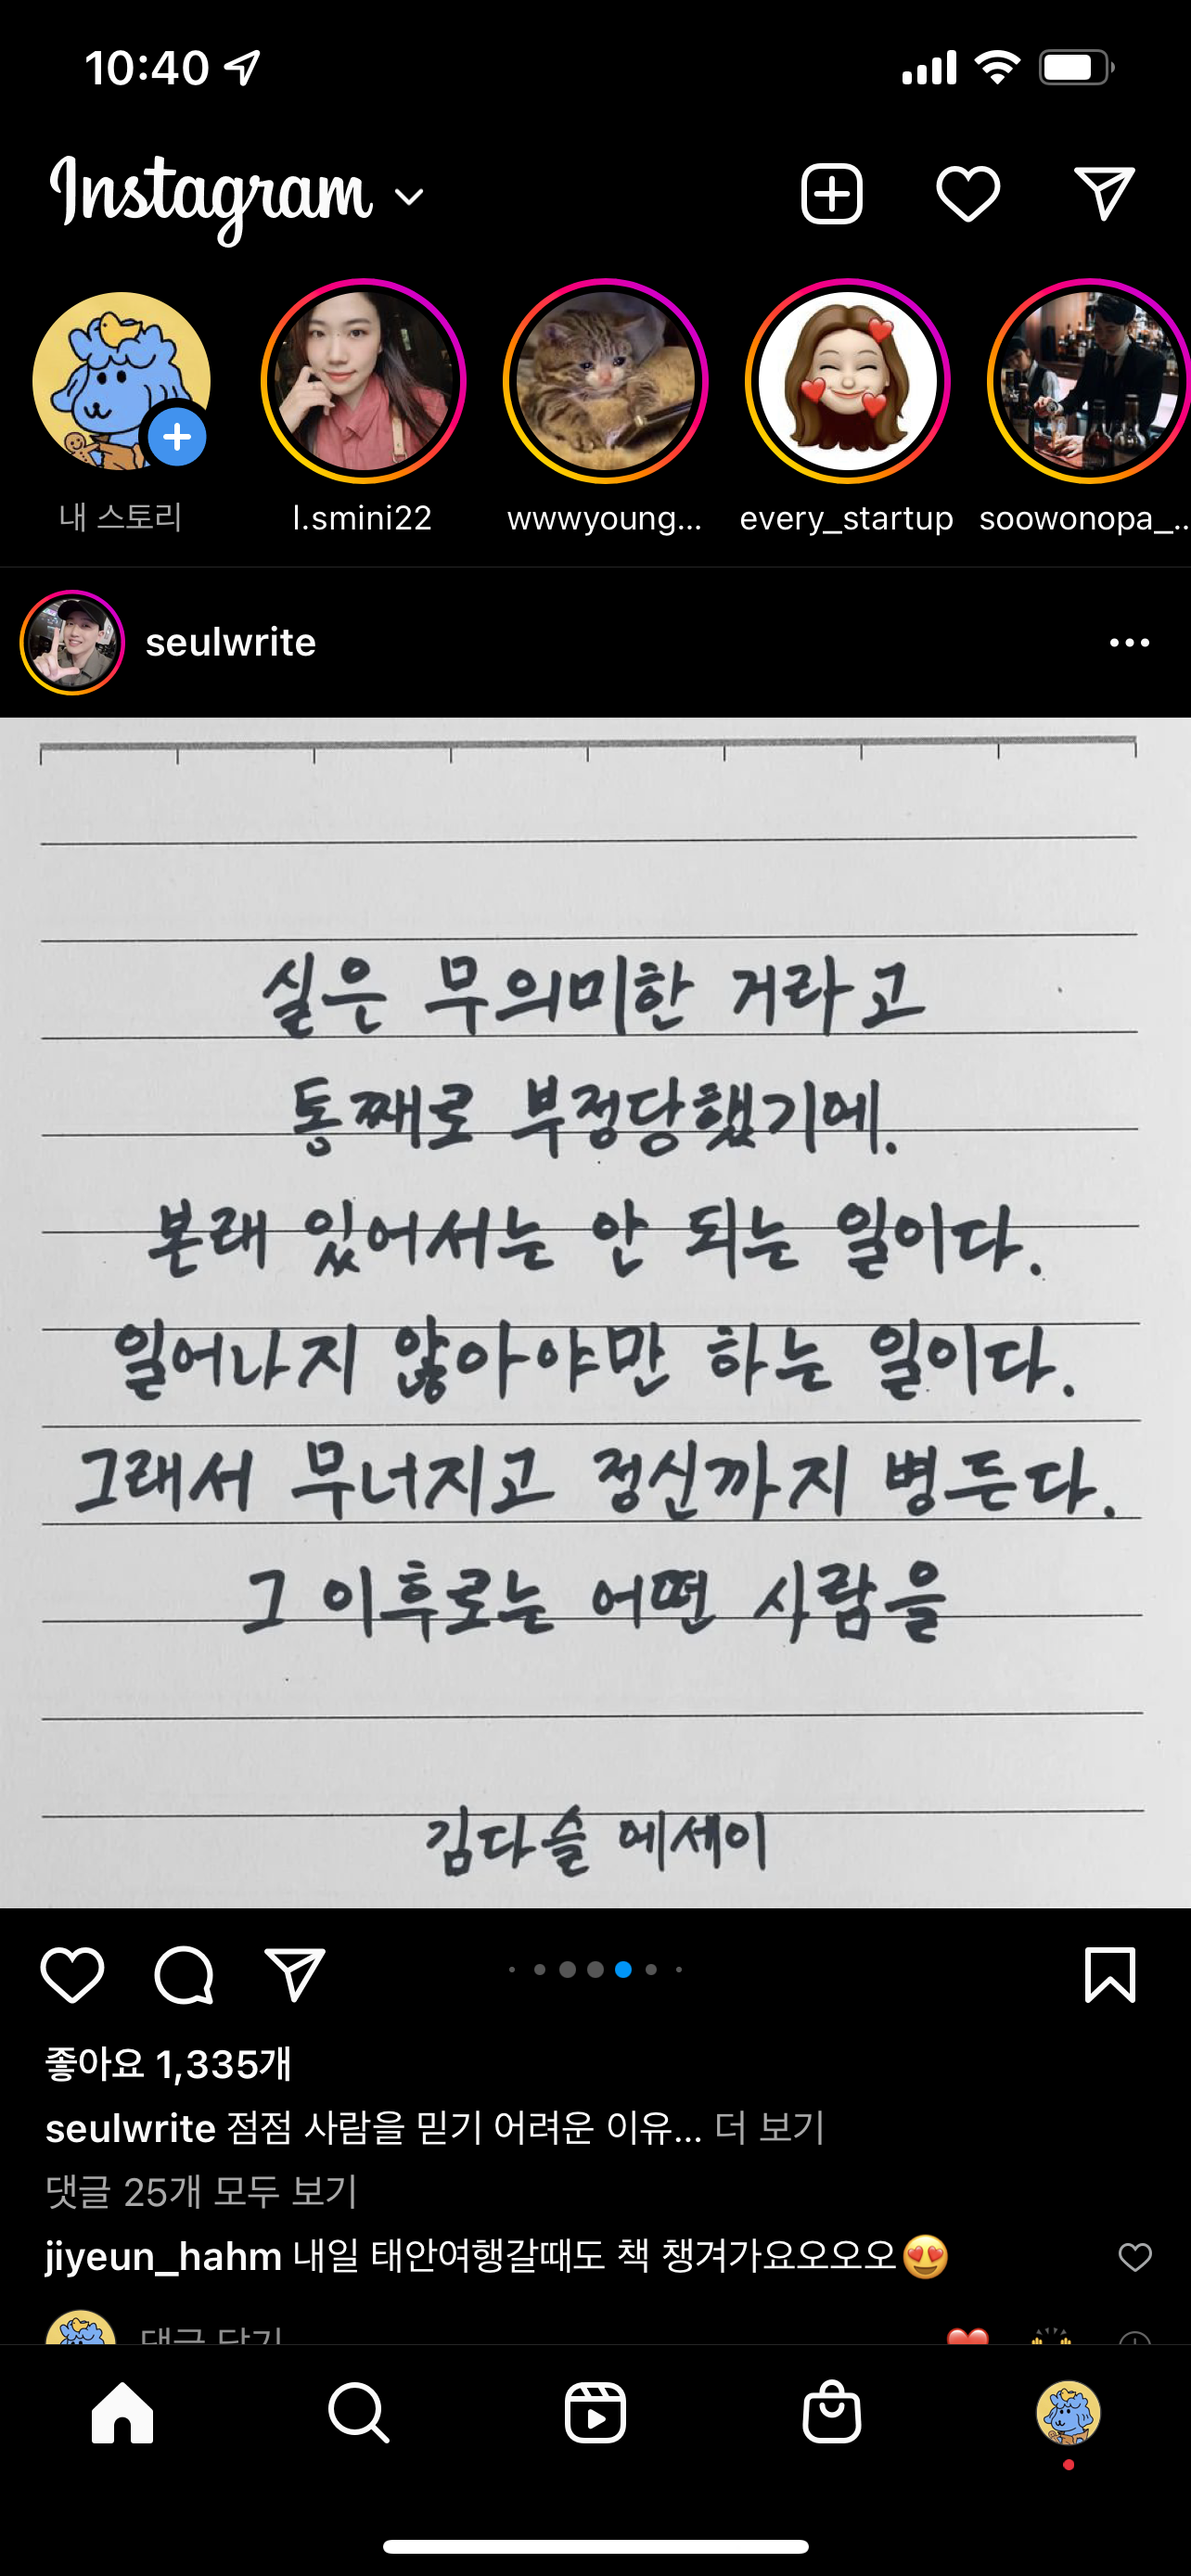 10:40
Instagram
내 스토리
l.smini22
wwwyoung...
every_startup
soowonopa_...
seulwrite
실은 무의미한 거라고
통째로 부정당했기에.
본래 있어서는 안 되는 일이다.
일어나지 않아야만 하는 일이다.
그래서 무너지고 정신까지 병든다.
그 이후로는 어떤 사람을
김다슬 에세이
좋아요 1,335개
seulwrite 점점 사람을 믿기 어려운 이유... 더 보기
댓글 25개 모두 보기
jiyeun_hahm 내일 태안여행갈때도 책 챙겨가요오오오😍
댓글 달기